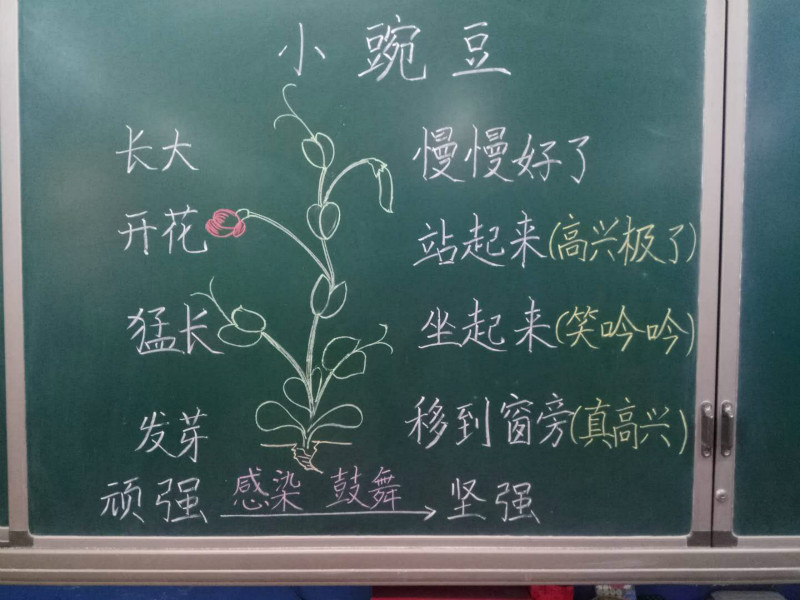 小豌豆
长大 慢慢好了
开花 站起来(高兴极了)
猛长 坐起来(笑吟吟)
发芽 移到窗旁(真高兴)
顽强 感染 鼓舞 坚强